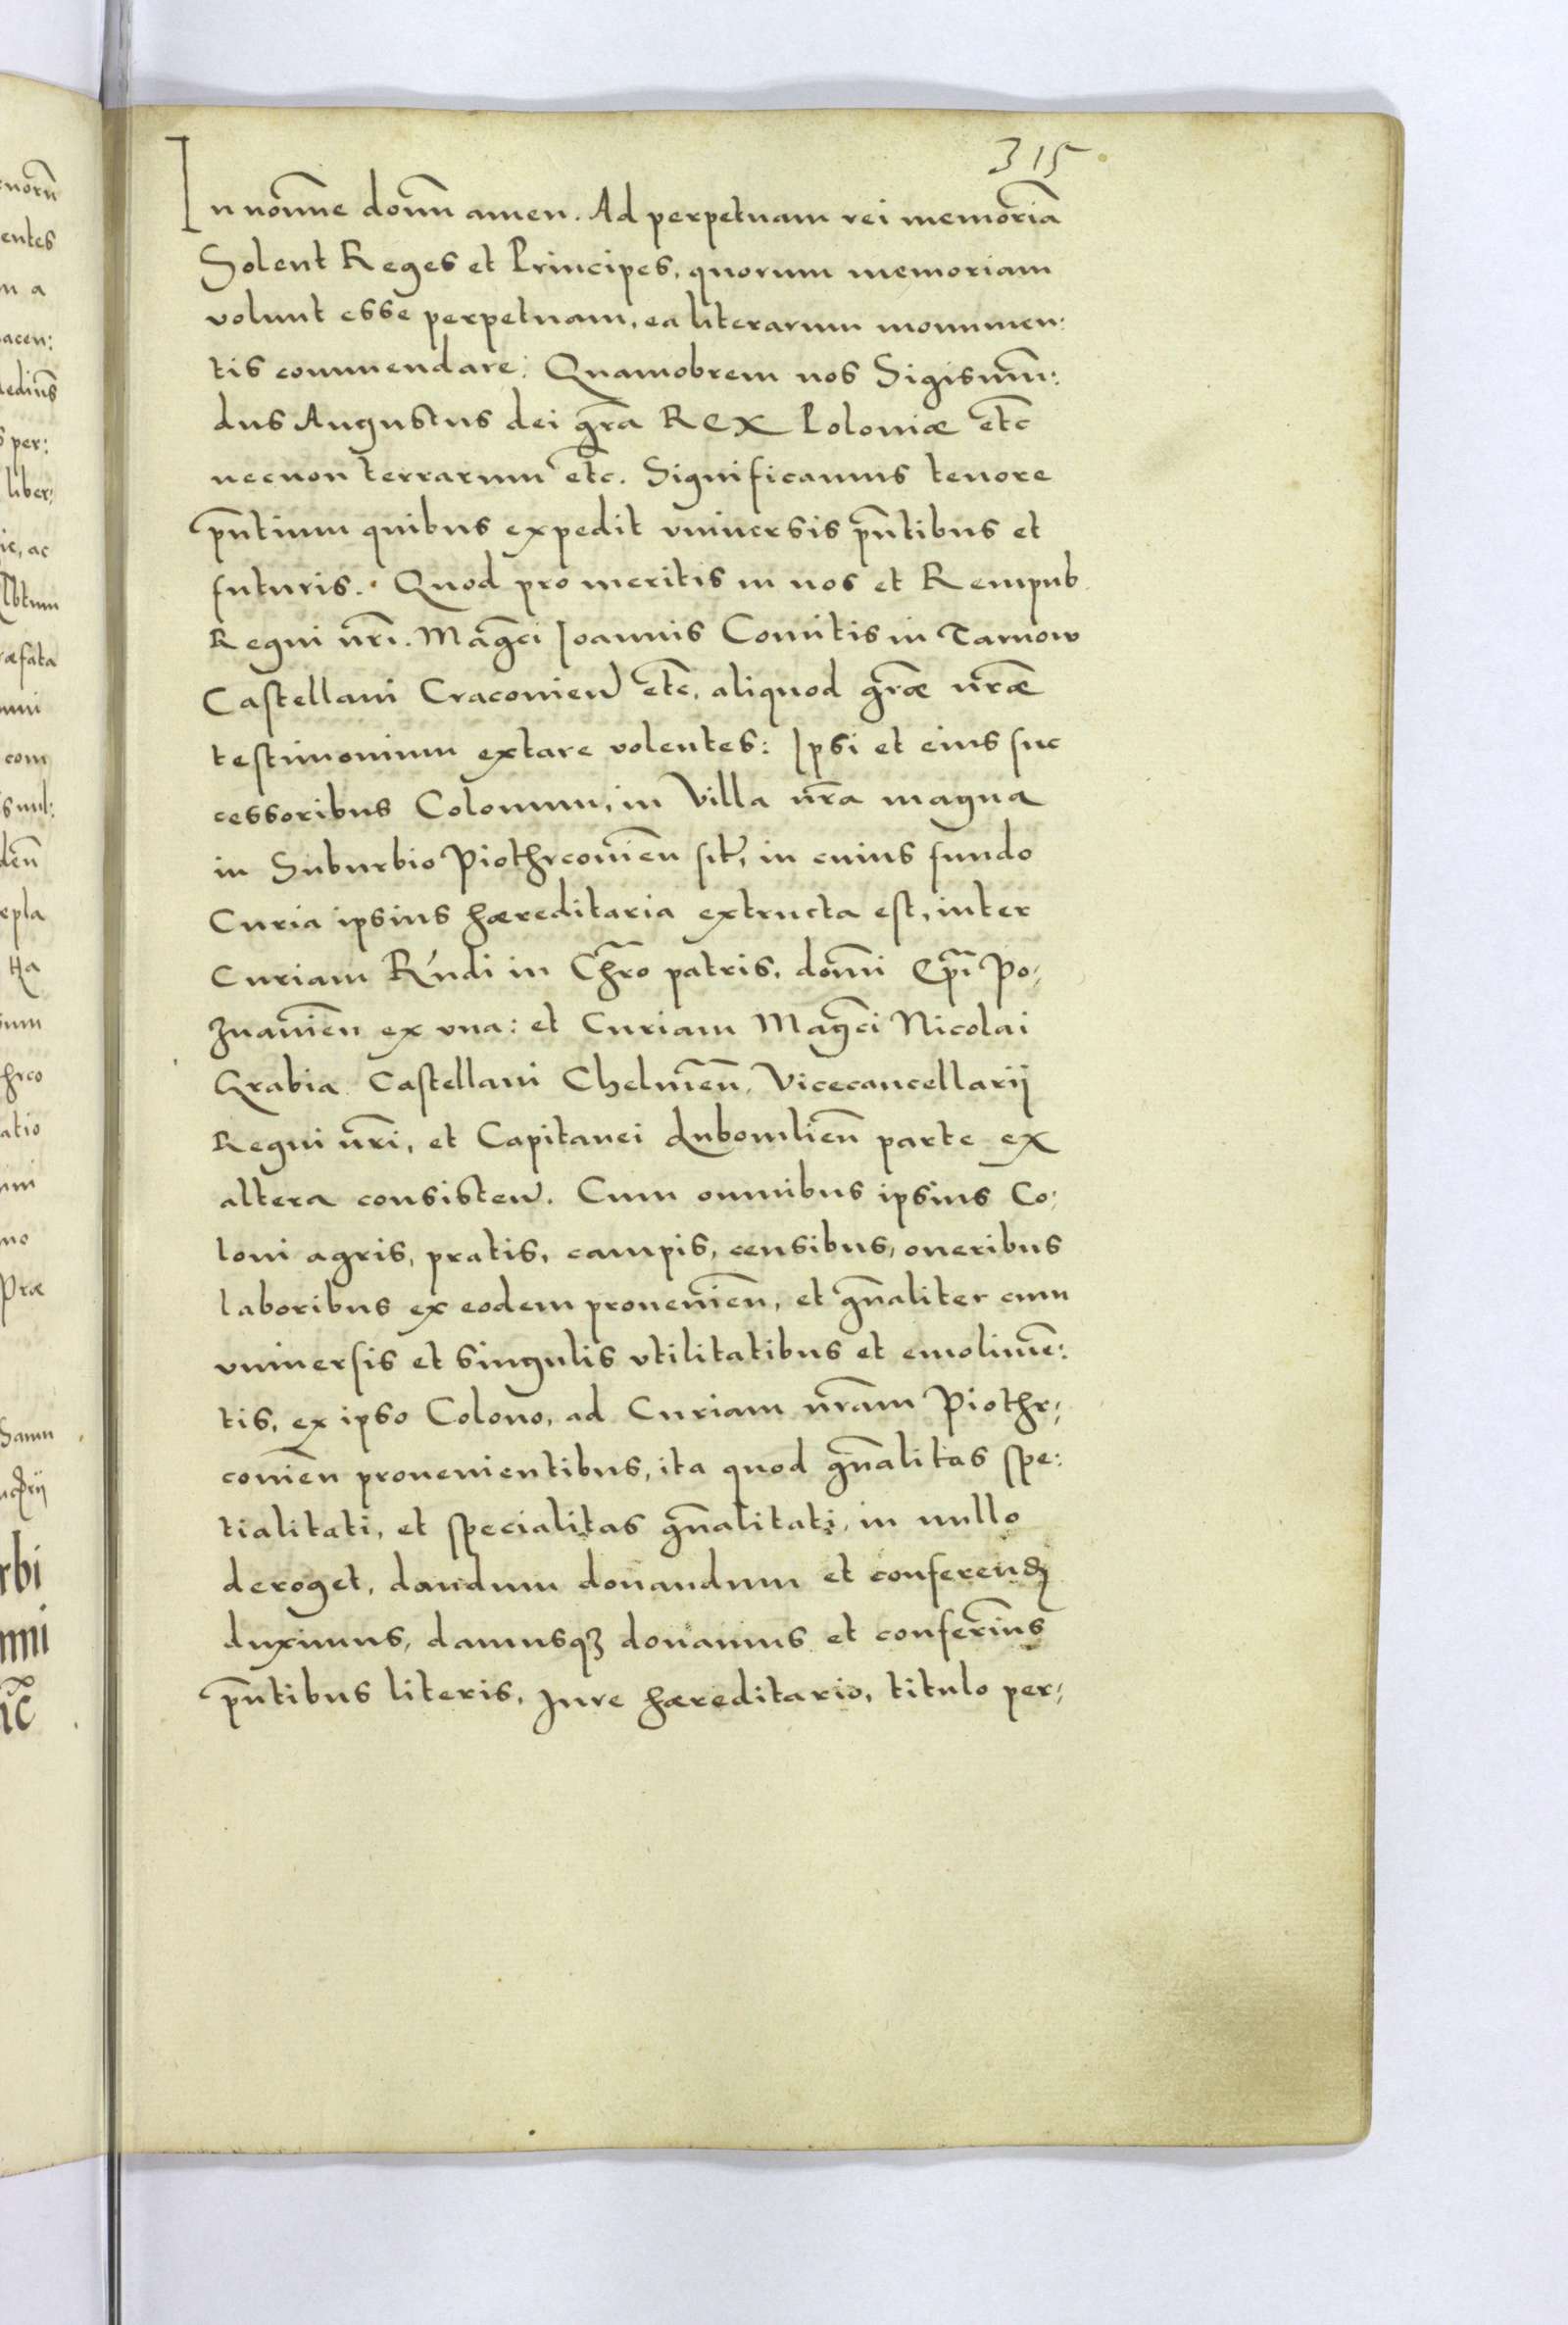 315
In nomīe domī amen. Ad perpetuam rei memoriā
Solent Reges et Principes, quorum memoriam
volunt esse perpetuam, ea literarum monumen:
tis commendare: Quamobrem nos Sigismū:
dus Augustus dei gr̄a Rex Poloniæ etc̄
necnon terrarum etc̄. Significamus tenore
pn̄tium quibus expedit vniuersis pn̄tibus et
futuris. Quod pro meritis in nos et Rempub.
Regni nr̄i. Maḡci Joannis Comitis in Tarnow
Castellani Cracovien̄ etc̄, aliquod gr̄æ nr̄æ
testimonium extare volentes: Ipsi et eius suc
cessoribus Colonum, in Villa nr̄a magna
in Suburbio Piothrcovien̄ sit̄, in cuius fundo
Curia ipsius hæreditaria extructa est, inter
Curiam R̄ndi in Chr̄o patris, domī Ep̄i Po:
znanien̄ ex vna: et Curiam Maḡci Nicolai
Grabia Castellani Chelmen̄, Vicecancellarij
Regni nr̄i, et Capitanei Lubomlien̄ parte ex
altera consisten̄. Cum omnibus ipsius Co:
loni agris, pratis, campis, censibus, oneribus
laboribus ex eodem provenien̄, et gn̄aliter cum
vniuersis et singulis vtilitatibus et emolimē:
tis, ex ipso Colono, ad Curiam nr̄am Piothr:
covien̄ prouenientibus, ita quod gn̄alitas spe:
tialitati, et specialitas gn̄alitati, in nullo
deroget, dandum donandum et conferendȝ
duximus, damusqȝ donamus et conferim̄s
pn̄tibus literis, Jure hæreditario, titulo per: